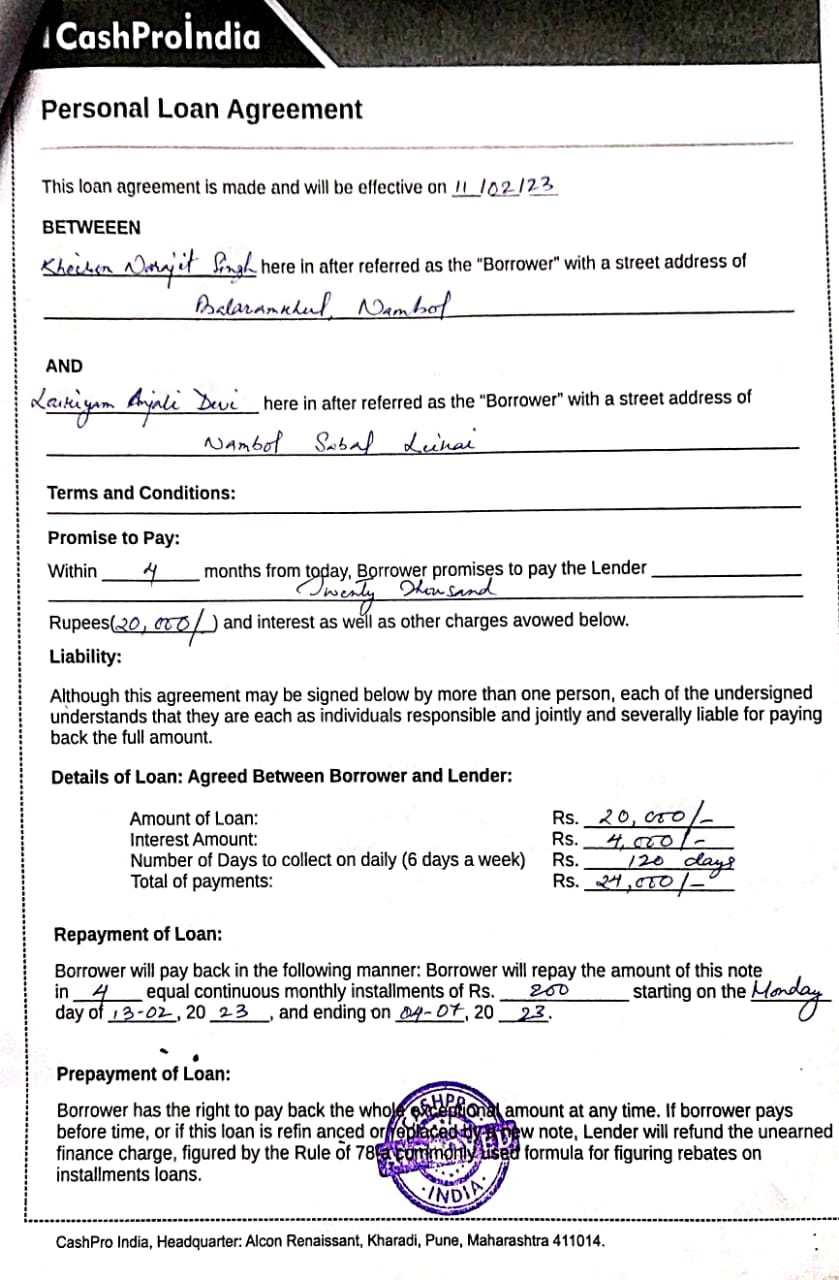 CashProindia
Personal Loan Agreement
This loan agreement is made and will be effective on 11/02/23
BETWEEEN
Kheichon Norajit Singh here in after referred as the "Borrower" with a street address of
Balaramkhul, Nambol
AND
Laikiyam Anjali Devi here in after referred as the "Borrower" with a street address of
Nambol Sabal Leikai
Terms and Conditions:
Promise to Pay:
Within 4 months from today, Borrower promises to pay the Lender
Twenty Thousand
Rupees(20,000/) and interest as well as other charges avowed below.
Liability:
Although this agreement may be signed below by more than one person, each of the undersigned
understands that they are each as individuals responsible and jointly and severally liable for paying
back the full amount.
Details of Loan: Agreed Between Borrower and Lender:
Amount of Loan: Rs. 20,000/-
Interest Amount: Rs. 4,000/-
Number of Days to collect on daily (6 days a week) Rs. 120 days
Total of payments: Rs. 24,000/-
Repayment of Loan:
Borrower will pay back in the following manner: Borrower will repay the amount of this note
in 4 equal continuous monthly installments of Rs. 200 starting on the Monday
day of 13-02, 20 23, and ending on 04-07, 20 23.
Prepayment of Loan:
Borrower has the right to pay back the whole exceptional amount at any time. If borrower pays
before time, or if this loan is refin anced or replaced by a new note, Lender will refund the unearned
finance charge, figured by the Rule of 78(a commonly used formula for figuring rebates on
installments loans.
INDIA
CashPro India, Headquarter: Alcon Renaissant, Kharadi, Pune, Maharashtra 411014.